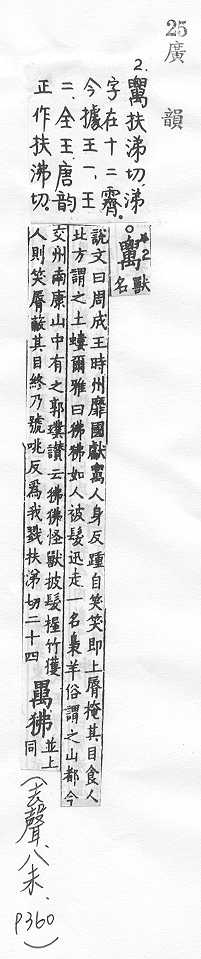 25 廣韻
2. 扶涕切,涕
字在十二霽。
今據王一、王
二、全王、唐韵
正作扶沸切。
*2 獸名
說文曰周成王時州靡國獻人身反踵自笑笑即上脣掩其目食人
北方謂之土螻爾雅曰狒狒如人被髮迅走一名梟羊俗謂之山都今
交州南康山中有之郭璞讚云狒狒怪獸披髮握竹獲
人則笑脣蔽其目終乃號咷反爲我戮扶涕切二十四
狒並上同
(去聲、八未、P360)